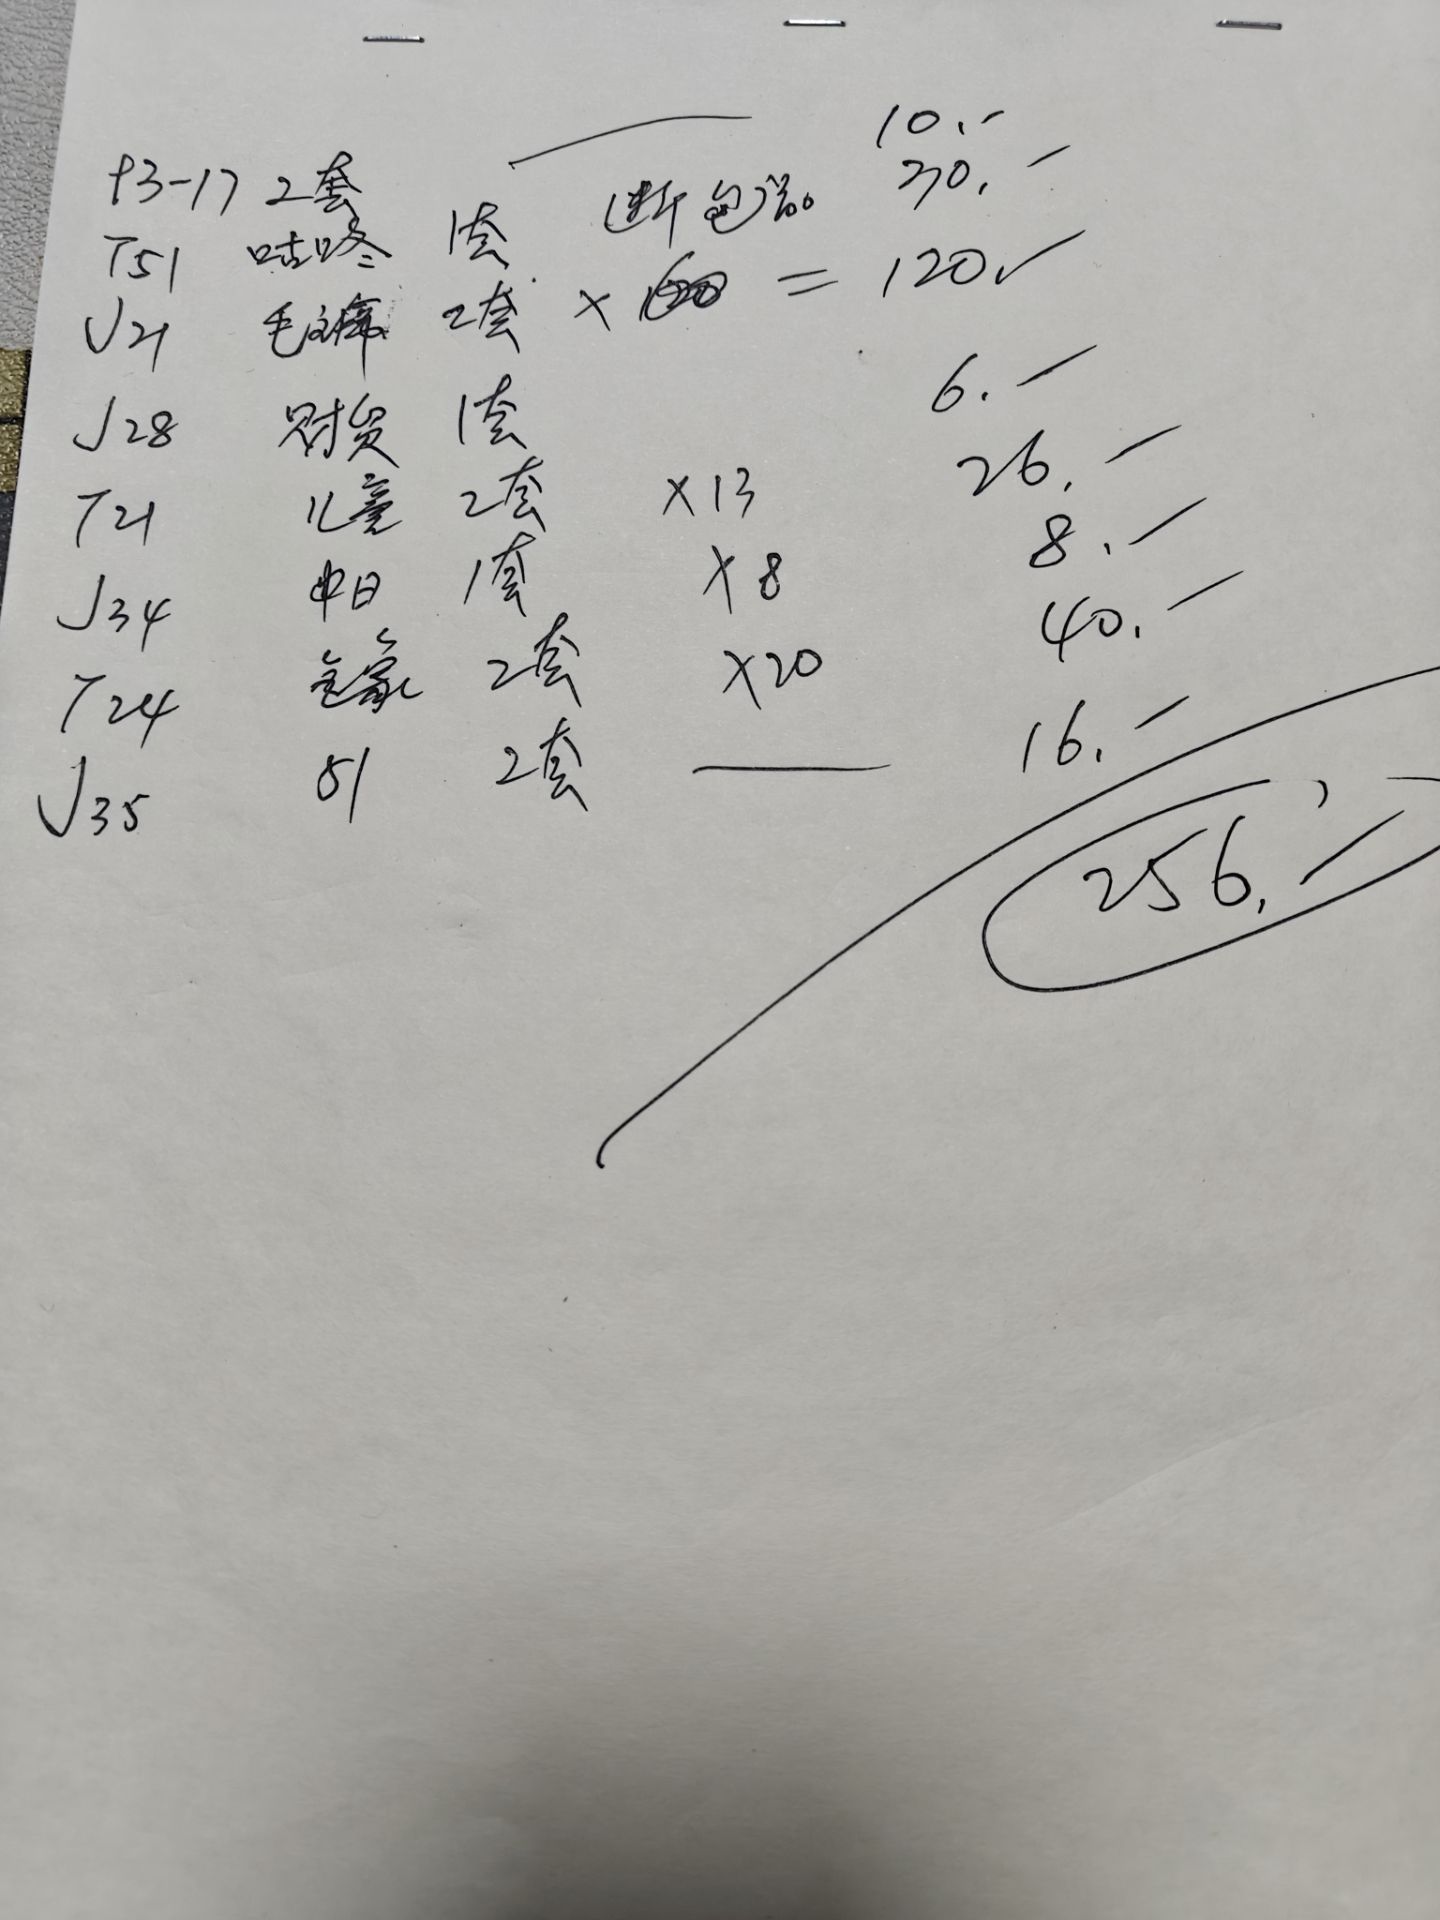 93-17 2套 10.-
T51 咕咚 1套 30.-
J21 毛主席 2套 × = 120.-
J28 财贸 1套 6.-
T21 儿童 2套 ×13 26.-
J34 中日 1套 ×8 8.-
T24 2套 ×20 40.-
J35 81 2套 16.-
256.-